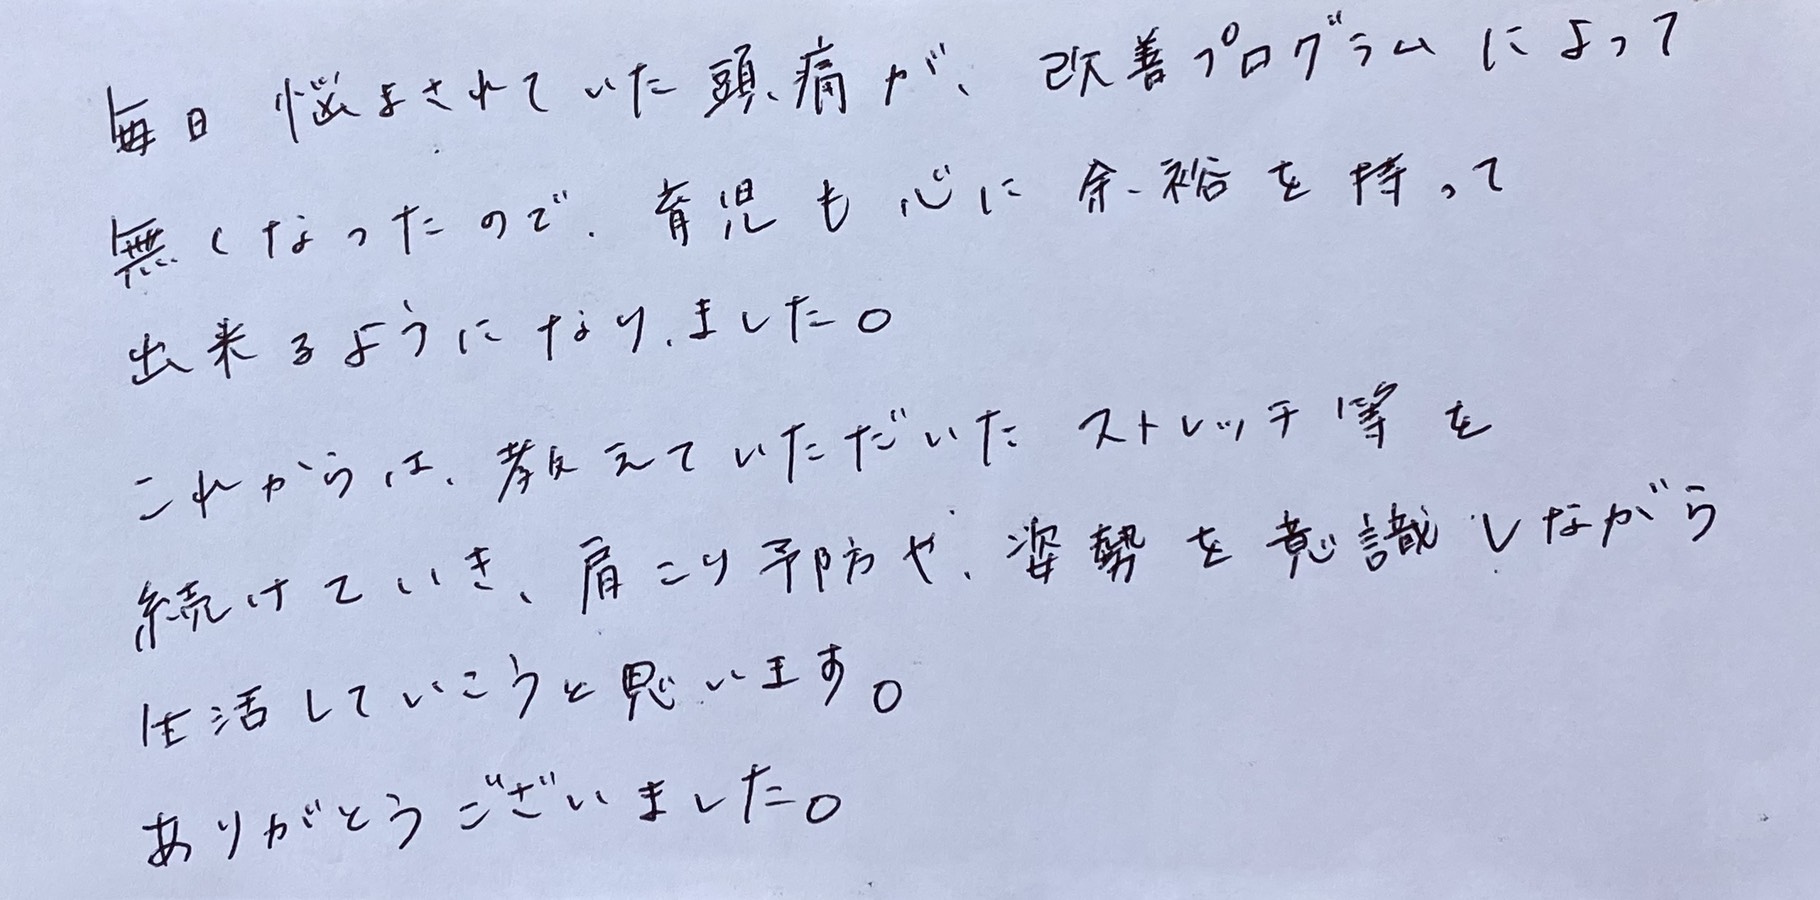 毎日悩まされていた頭痛が、改善プログラムによって
無くなったので、育児も心に余裕を持って
出来るようになりました。
これからは、教えていただいたストレッチ等を
続けていき、肩こり予防や、姿勢を意識しながら
生活していこうと思います。
ありがとうございました。